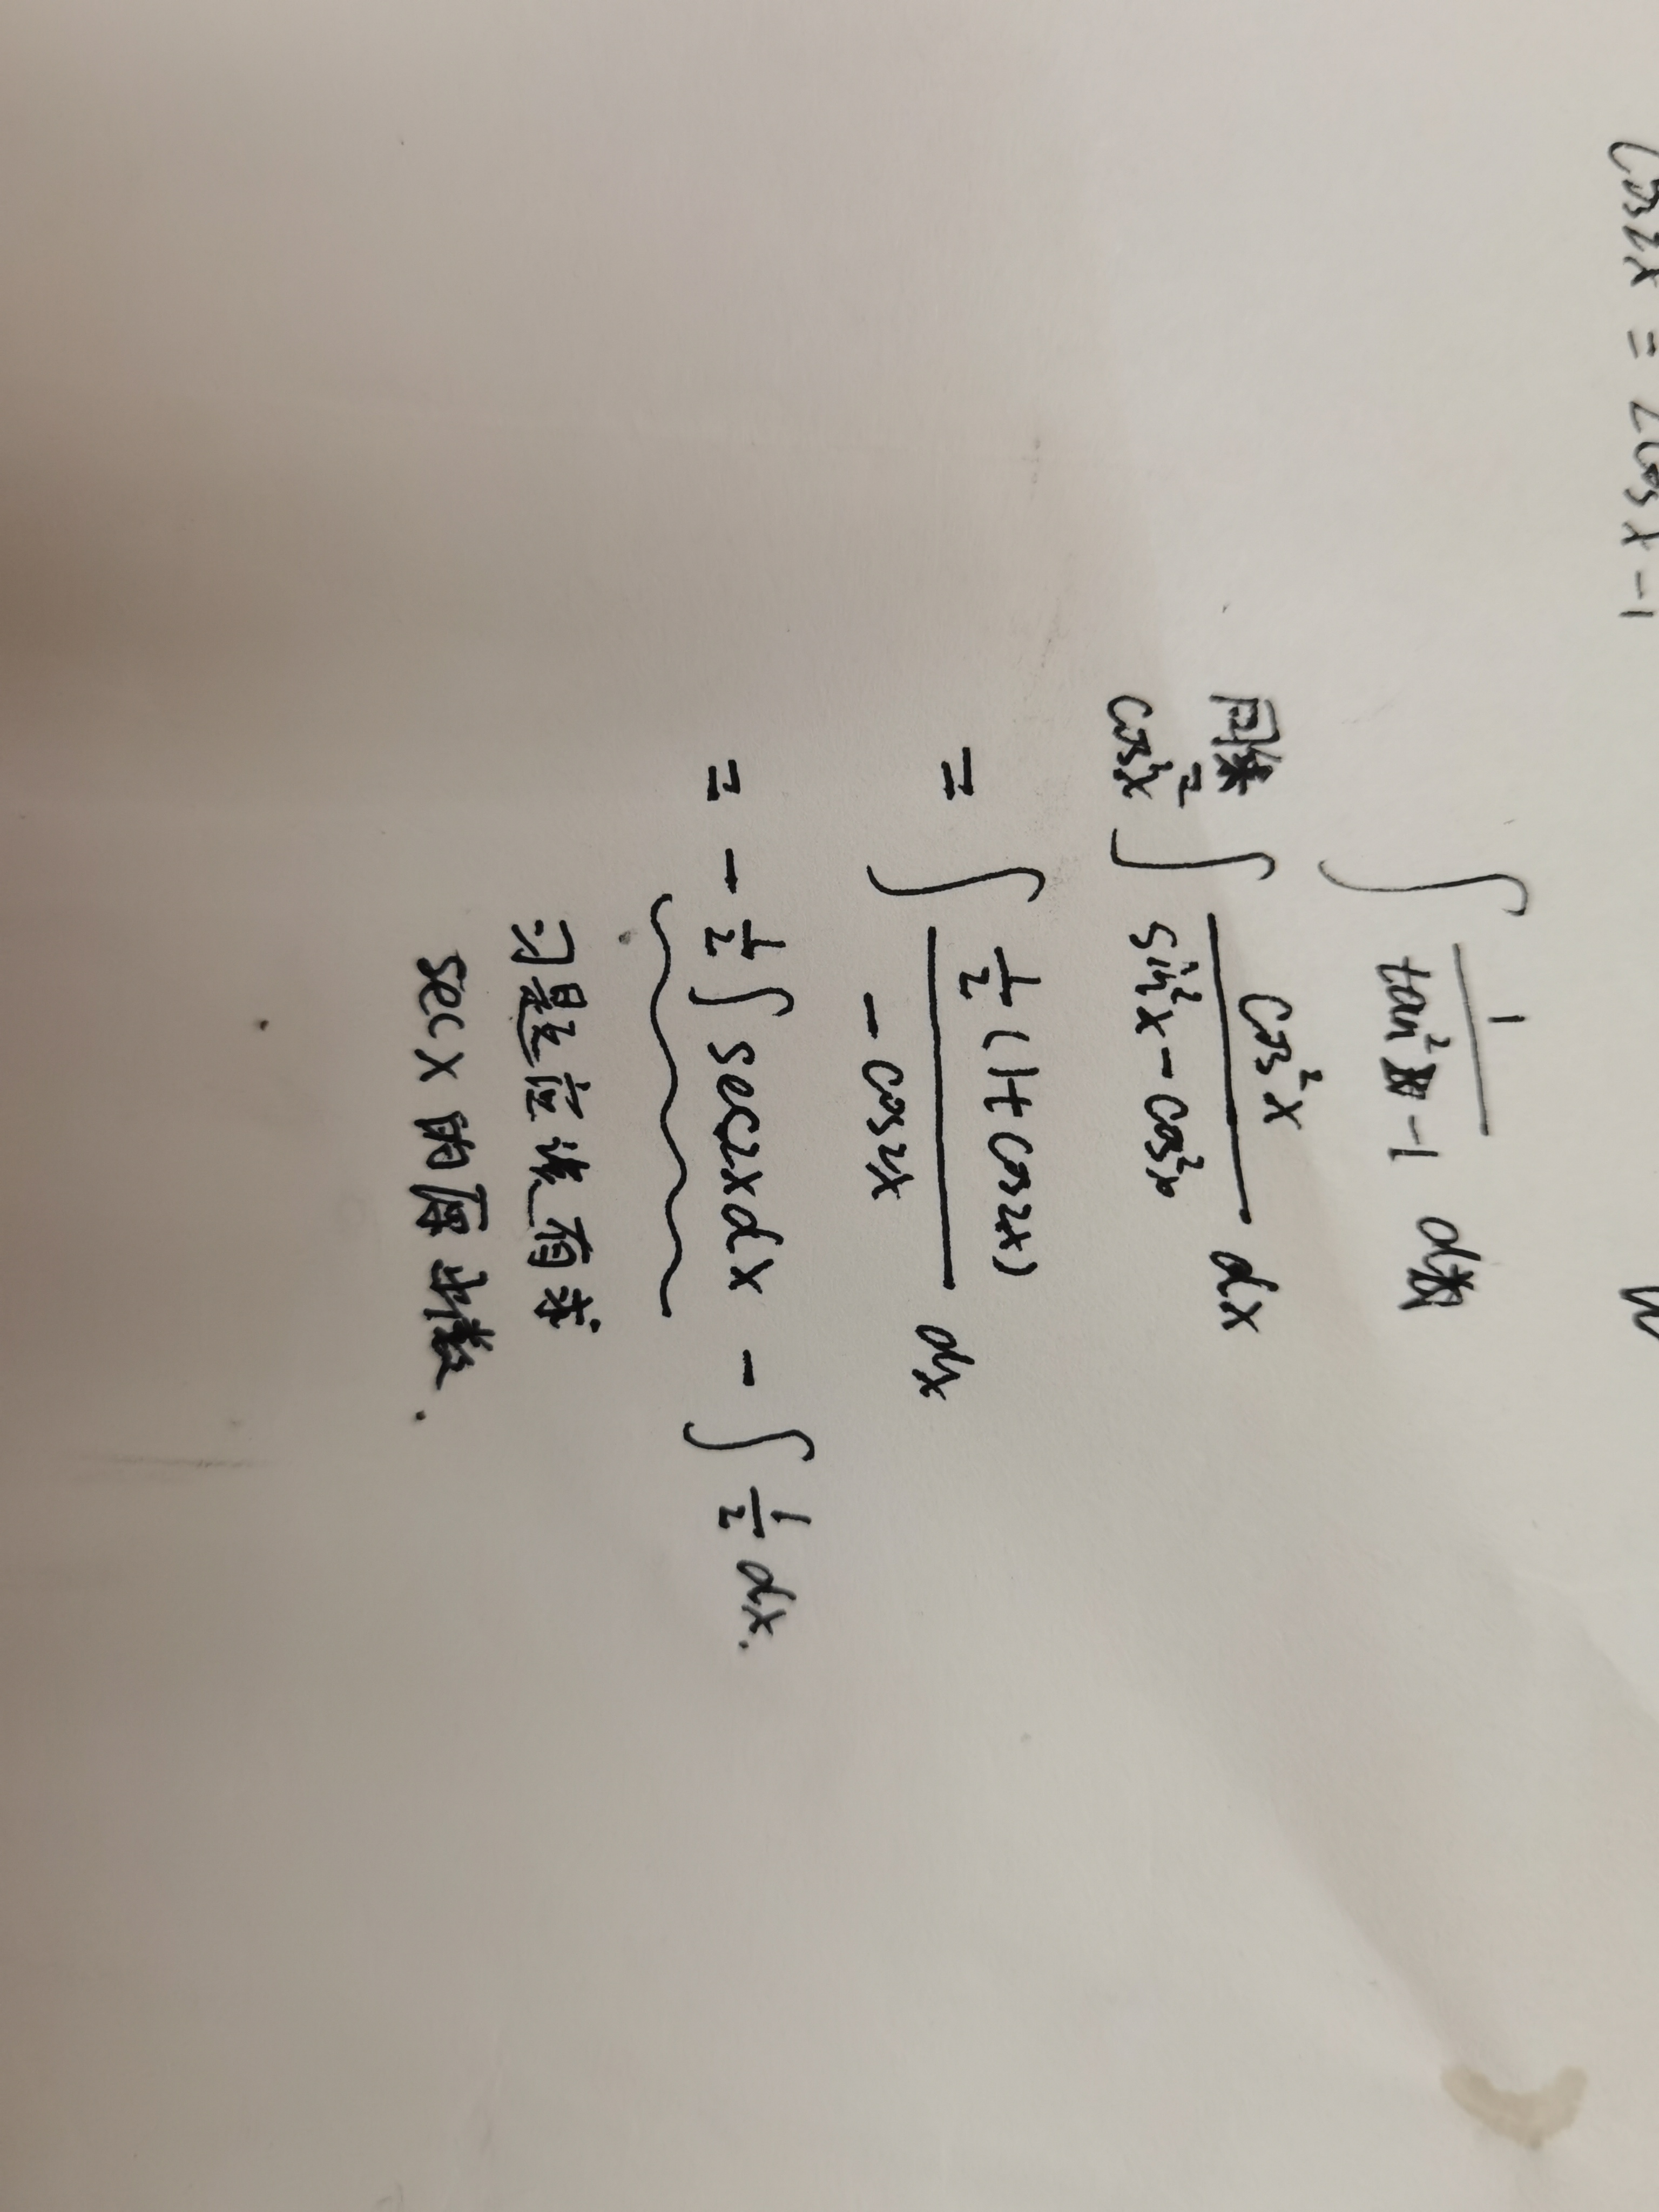 cos2x = 2cosx-1
∫ 1/(tan²x-1) dx
同乘cos²x = ∫ cos²x/(sin²x-cos²x) dx
= ∫ ½(1+cos2x)/(-cos2x) dx
= -½∫sec2xdx - ∫½dx.
习是应该有求
secx的原函数.